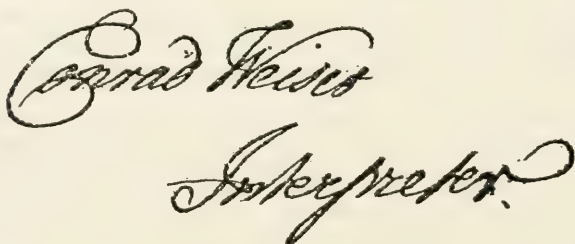 Conrad Weiser
Interpreter.